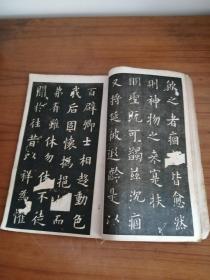 飲之者痼皆愈然
則神物之來寔扶
明聖既可蠲茲沉痼
又將延彼遐齡是以
百辟卿士相趨動色
我后固懷撝挹而
弗有雖休勿不徒
聞於往昔以祥懼